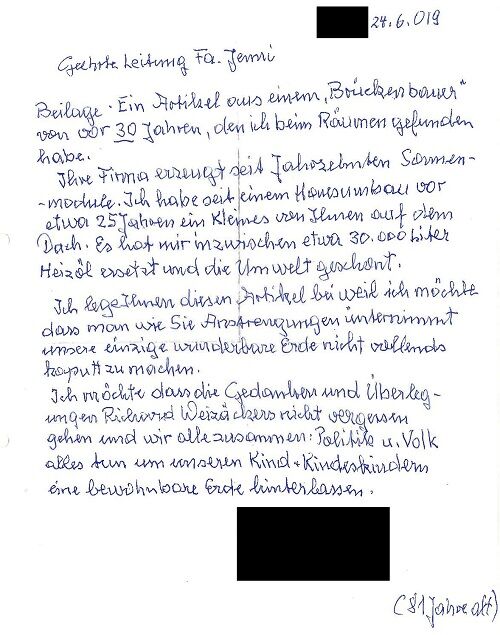 24.6.019
Geehrte Leitung Fa. Jenni
Beilage. Ein Artikel aus einem "Brückenbauer"
von vor 30 Jahren, den ich beim Räumen gefunden
habe.
Ihre Firma erzeugt seit Jahrzehnten Sonnen-
-module. Ich habe seit einem Hausumbau vor
etwa 25 Jahren ein Kleines von Ihnen auf dem
Dach. Es hat mir inzwischen etwa 30.000 Liter
Heizöl ersetzt und die Umwelt geschont.
Ich lege Ihnen diesen Artikel bei weil ich möchte
dass man wie Sie Anstrengungen unternimmt
unsere einzige wunderbare Erde nicht vollends
kaputt zu machen.
Ich möchte dass die Gedanken und Überleg-
ungen Richard Weizäckers nicht vergessen
gehen und wir alle zusammen: Politik u. Volk
alles tun um unseren Kind + Kindeskindern
eine bewohnbare Erde hinterlassen.
(81 Jahre alt)